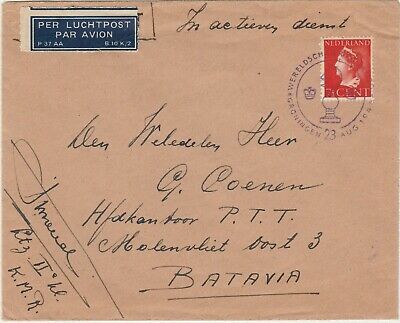 PER LUCHTPOST
PAR AVION
P 37 AA B. 10 K/2
In actieven dienst
NEDERLAND
7½ CENT
WERELDSCH
GRONINGEN 23 AUG. 194
Den Weledelen Heer
G. Coenen
Hfdkantoor P.T.T.
Molenvliet Oost 3
BATAVIA
Ltz IIe kl.
K.M.R.